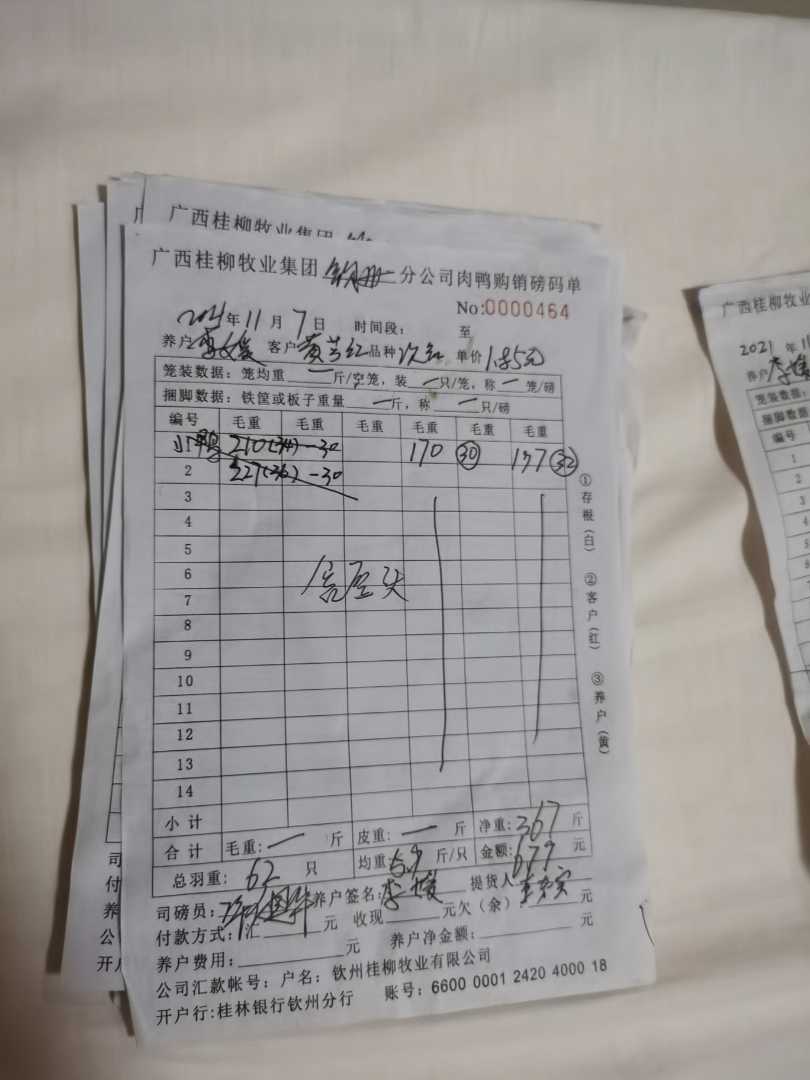 广西桂柳牧业集团
广西桂柳牧业集团 分公司肉鸭购销磅码单
No:0000464
2021年11月7日 时间段: 至
养户 李媛 客户 黄芳红 品种 次红 单价 1.85元
笼装数据: 笼均重 一 斤/空笼, 装 一 只/笼, 称 一 笼/磅
捆脚数据: 铁筐或板子重量 一 斤, 称 一 只/磅
编号 毛重 毛重 毛重 毛重 毛重 毛重
小鸭 210(34)-30 170 30 197 32
2 227(36)-30
3
4
5
6
7
8
9
10
11
12
13
14
小计
合计 毛重: 一 斤 皮重: 一 斤 净重: 367 斤
总羽重: 62 只 均重 5.9 斤/只 金额: 679 元
司磅员: 养户签名: 李媛 提货人
付款方式: 汇 元 收现 元欠(余): 元
养户费用: 元 养户净金额: 元
公司汇款帐号: 户名: 钦州桂柳牧业有限公司
开户行:桂林银行钦州分行 账号: 6600 0001 2420 4000 18
①存根(白) ②客户(红) ③养户(黄)
司
付
养
公
开户
广西桂柳牧业
2021 年 11
养户 李媛
笼装数据:
捆脚数据
编号
1
2
3
4
5
6
7
8
9
10
11
12